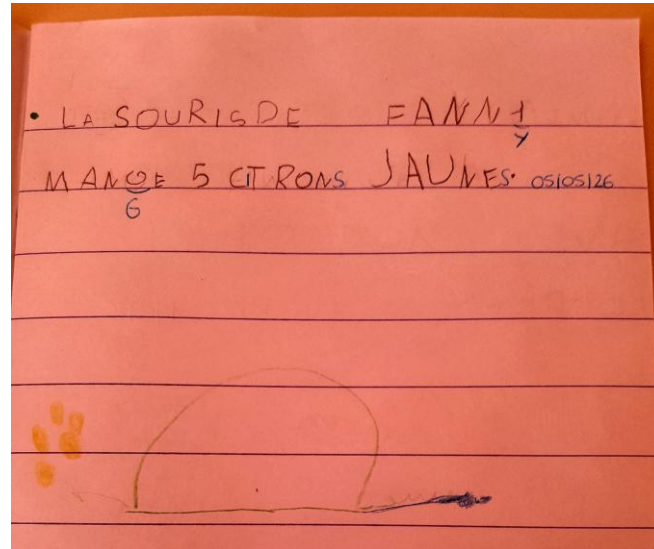 • LA SOURIS DE FANNY
Y
MANGE 5 CITRONS JAUNES. 05/05/26
G